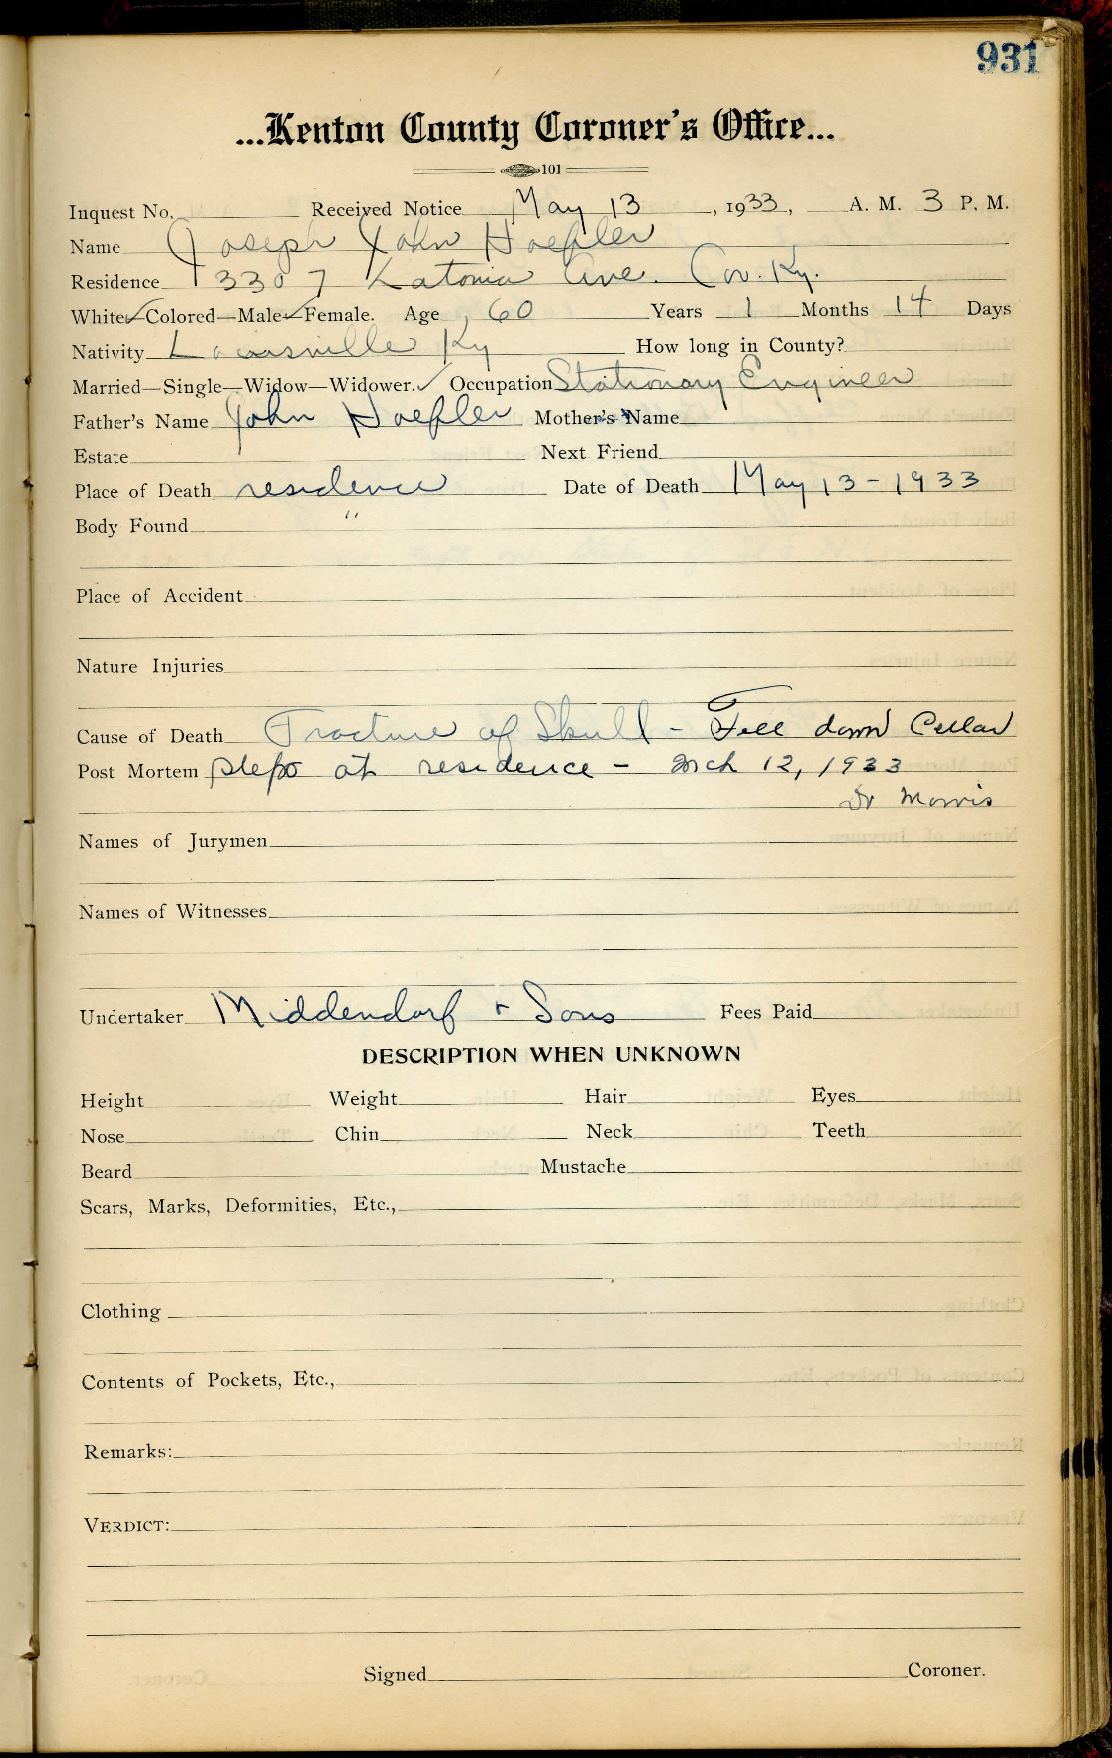 931
...Kenton County Coroner's Office...
101
Inquest No. Received Notice May 13, 1933, A. M. 3 P. M.
Name Joseph John Hoefler
Residence 3307 Latonia Ave. Cov. Ky.
White✓Colored—Male✓Female. Age 60 Years 1 Months 14 Days
Nativity Louisville Ky How long in County?
Married—Single—Widow—Widower.✓ Occupation Stationary Engineer
Father's Name John Hoefler Mother's Name
Estate Next Friend
Place of Death residence Date of Death May 13-1933
Body Found "
Place of Accident
Nature Injuries
Cause of Death Fracture of Skull - Fell down Cellar
Post Mortem steps at residence - Mch 12, 1933
Dr Morris
Names of Jurymen
Names of Witnesses
Undertaker Middendorf + Sons Fees Paid
DESCRIPTION WHEN UNKNOWN
Height Weight Hair Eyes
Nose Chin Neck Teeth
Beard Mustache
Scars, Marks, Deformities, Etc.,
Clothing
Contents of Pockets, Etc.,
Remarks:
VERDICT:
Signed Coroner.